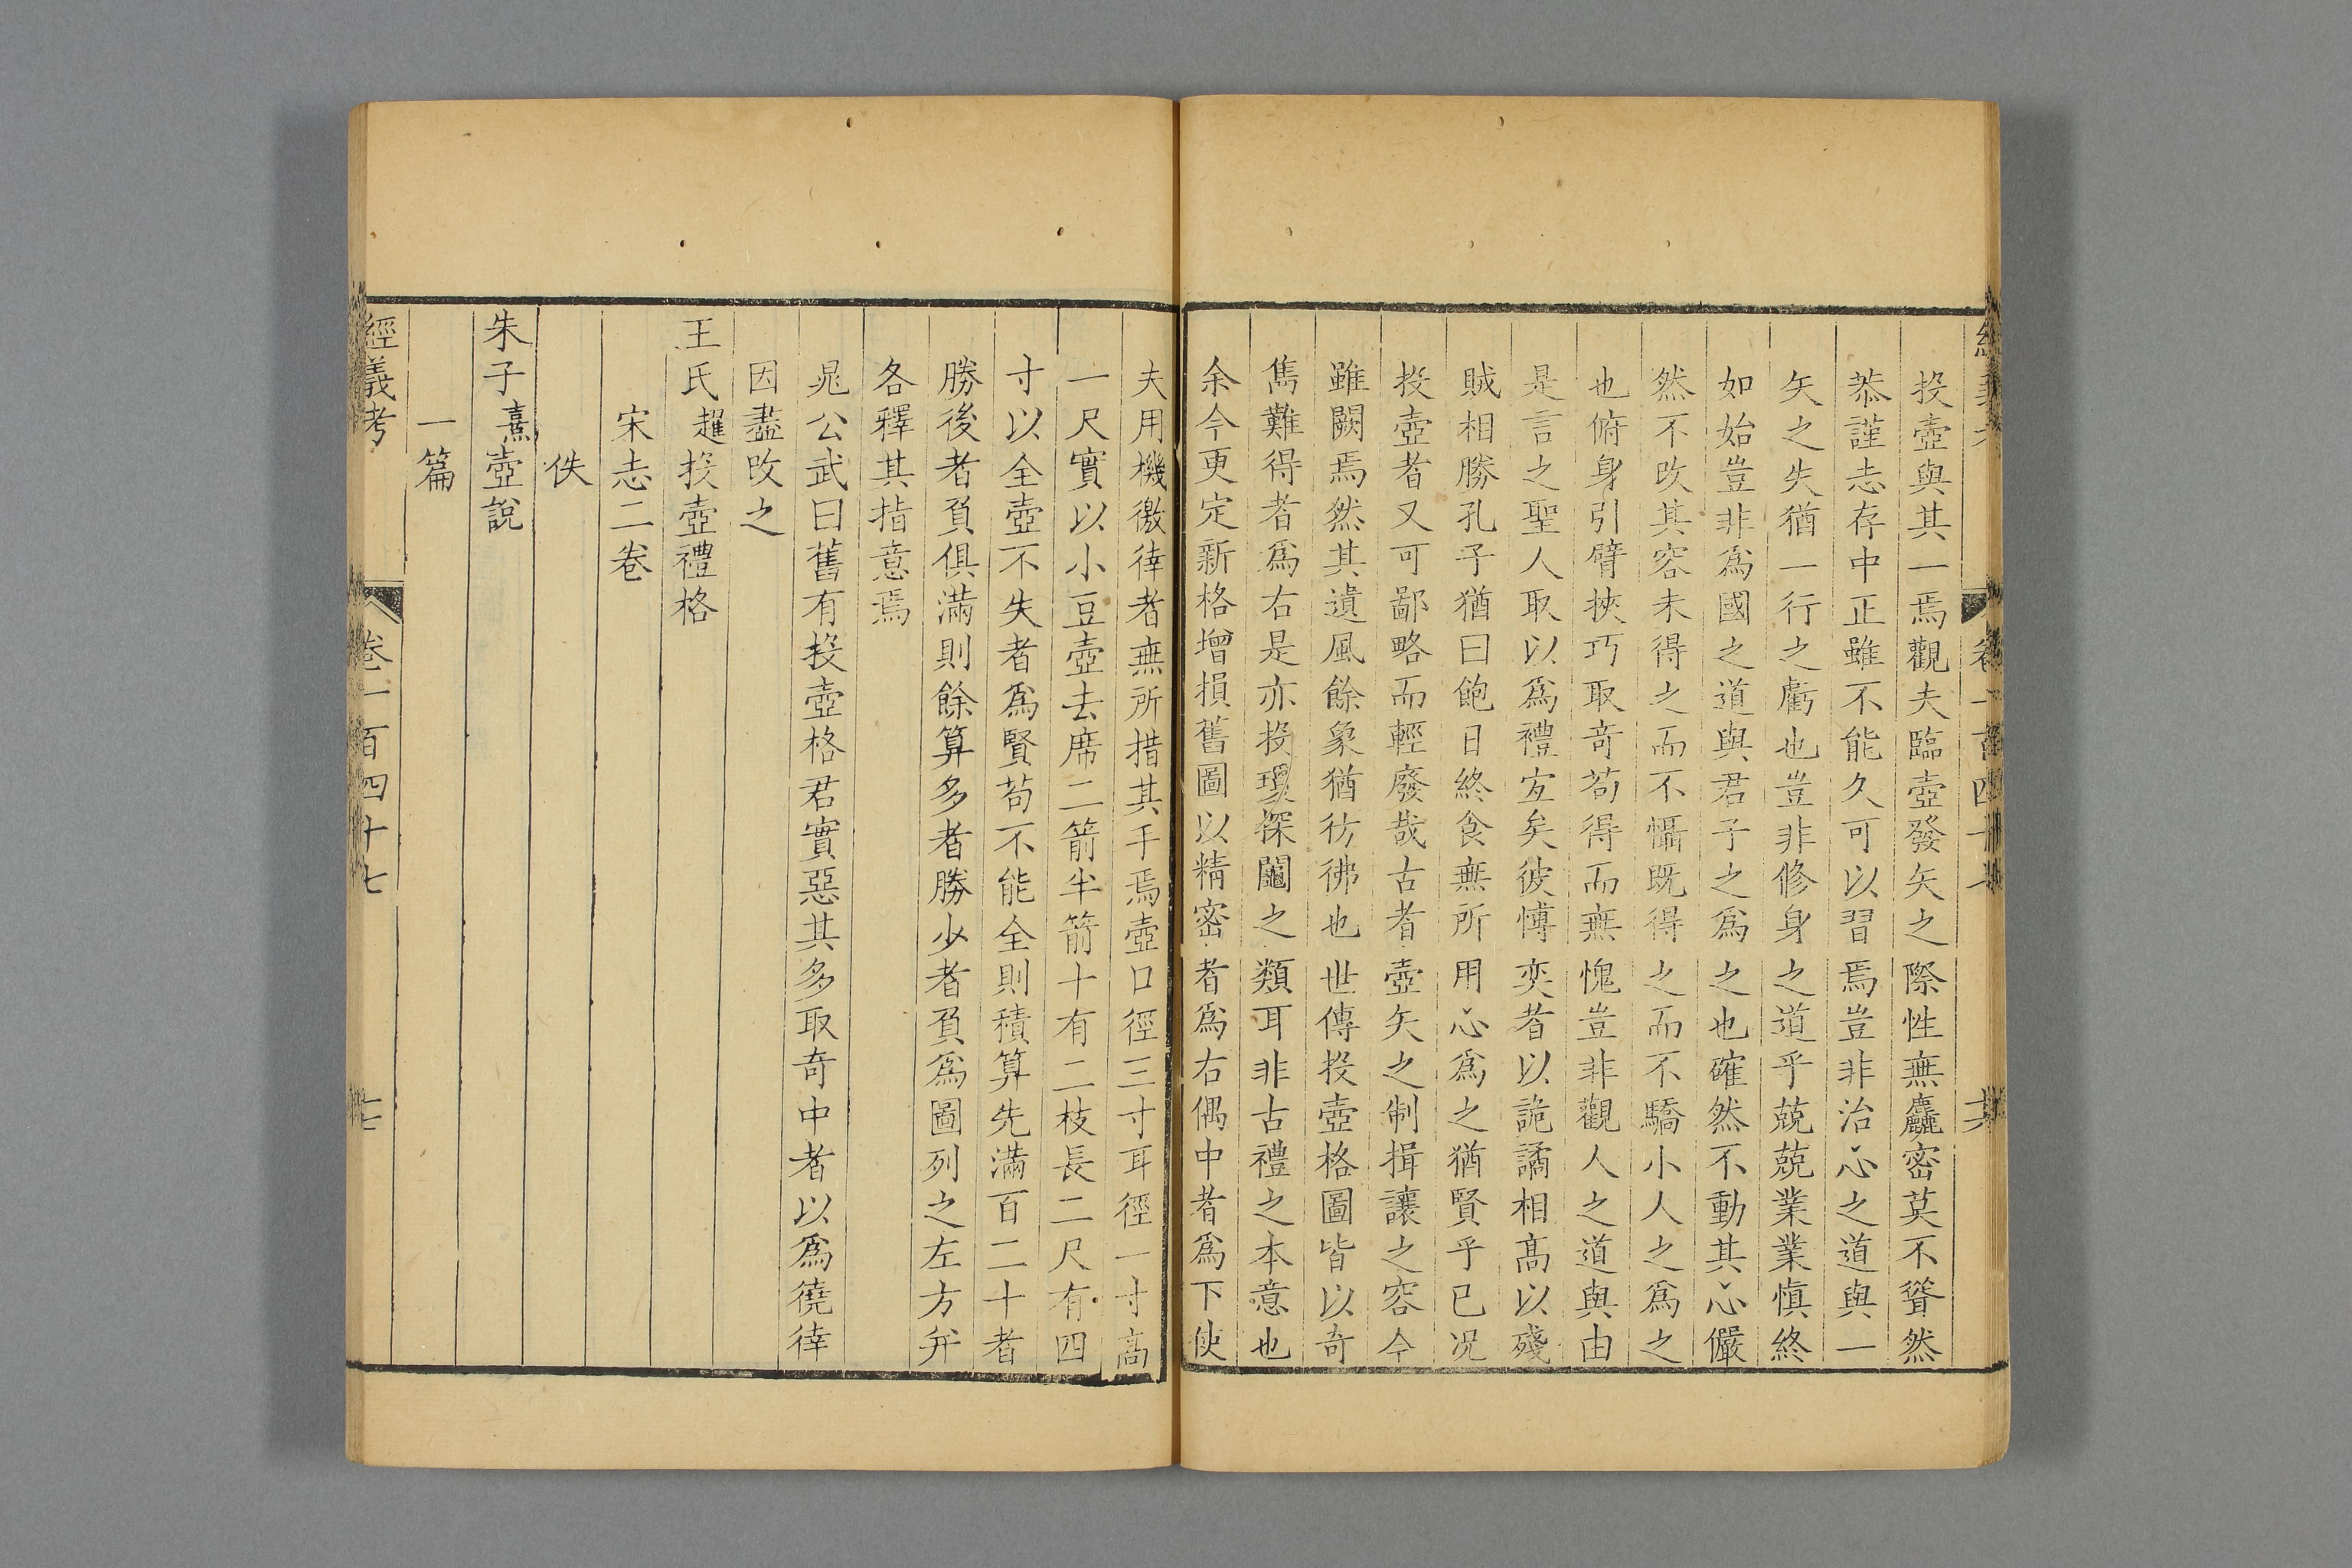 投壺與其一焉觀夫臨壺發矢之際性無麤密莫不聳然
恭謹志存中正雖不能久可以習焉豈非治心之道與一
矢之失猶一行之虧也豈非修身之道乎兢兢業業慎終
如始豈非爲國之道與君子之爲之也確然不動其心儼
然不改其容未得之而不懾既得之而不驕小人之爲之
也俯身引臂挾巧取竒苟得而無愧豈非觀人之道與由
是言之聖人取以爲禮宐矣彼博奕者以詭譎相高以殘
賊相勝孔子猶曰飽日終食無所用心爲之猶賢乎已况
投壺者又可鄙略而輕廢哉古者壺矢之制揖讓之容今
雖闕焉然其遺風餘象猶彷彿也世傳投壺格圖皆以竒
雋難得者爲右是亦投瓊探鬮之類耳非古禮之本意也
余今更定新格增損舊圖以精密者爲右偶中者爲下使
夫用機徼倖者無所措其手焉壺口徑三寸耳徑一寸高
一尺實以小豆壺去席二箭半箭十有二枝長二尺有四
寸以全壺不失者爲賢苟不能全則積算先滿百二十者
勝後者負俱滿則餘算多者勝少者負爲圖列之左方并
各釋其指意焉
晁公武曰舊有投壺格君實惡其多取奇中者以爲僥倖
因盡改之
王氏趯投壺禮格
宋志二卷
佚
朱子熹壺說
一篇
經義考 卷一百四十七 七